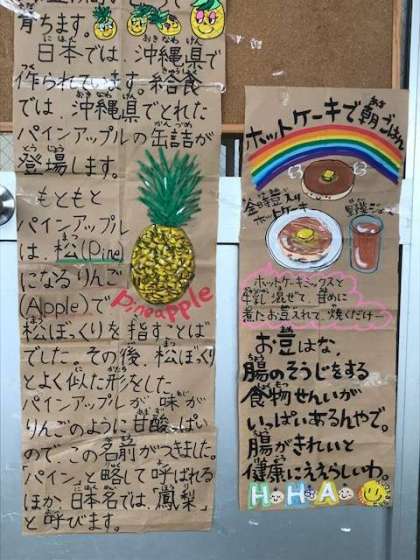 育ちます。
日本では、沖縄県で
作られています。給食
では、沖縄県でとれた
パインアップルの缶詰が
登場します。
もともと
パインアップル
は、松(Pine)
になるりんご
(Apple)で
松ぼっくりを指すことば
でした。その後、松ぼっくり
とよく似た形をした
パインアップルが味が
りんごのように甘酸っぱい
ので、この名前がつきました。
「パイン」と略して呼ばれる
ほか、日本名では、「鳳梨」
と呼びます。
Pineapple
ホットケーキで朝ごはん
ホットケーキ
ホットケーキミックスと
牛乳混ぜて、甘めに
煮たお豆入れて焼くだけー
お豆はな、
腸のそうじをする
食物せんいが
いっぱいあるんやで。
腸がきれいと
健康にええらしいわ。
HOHAO